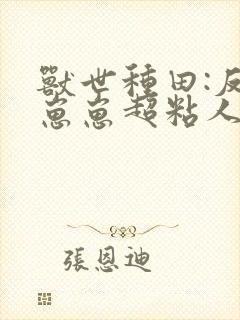 獸世種田:反
崽崽超粘人
張恩迪